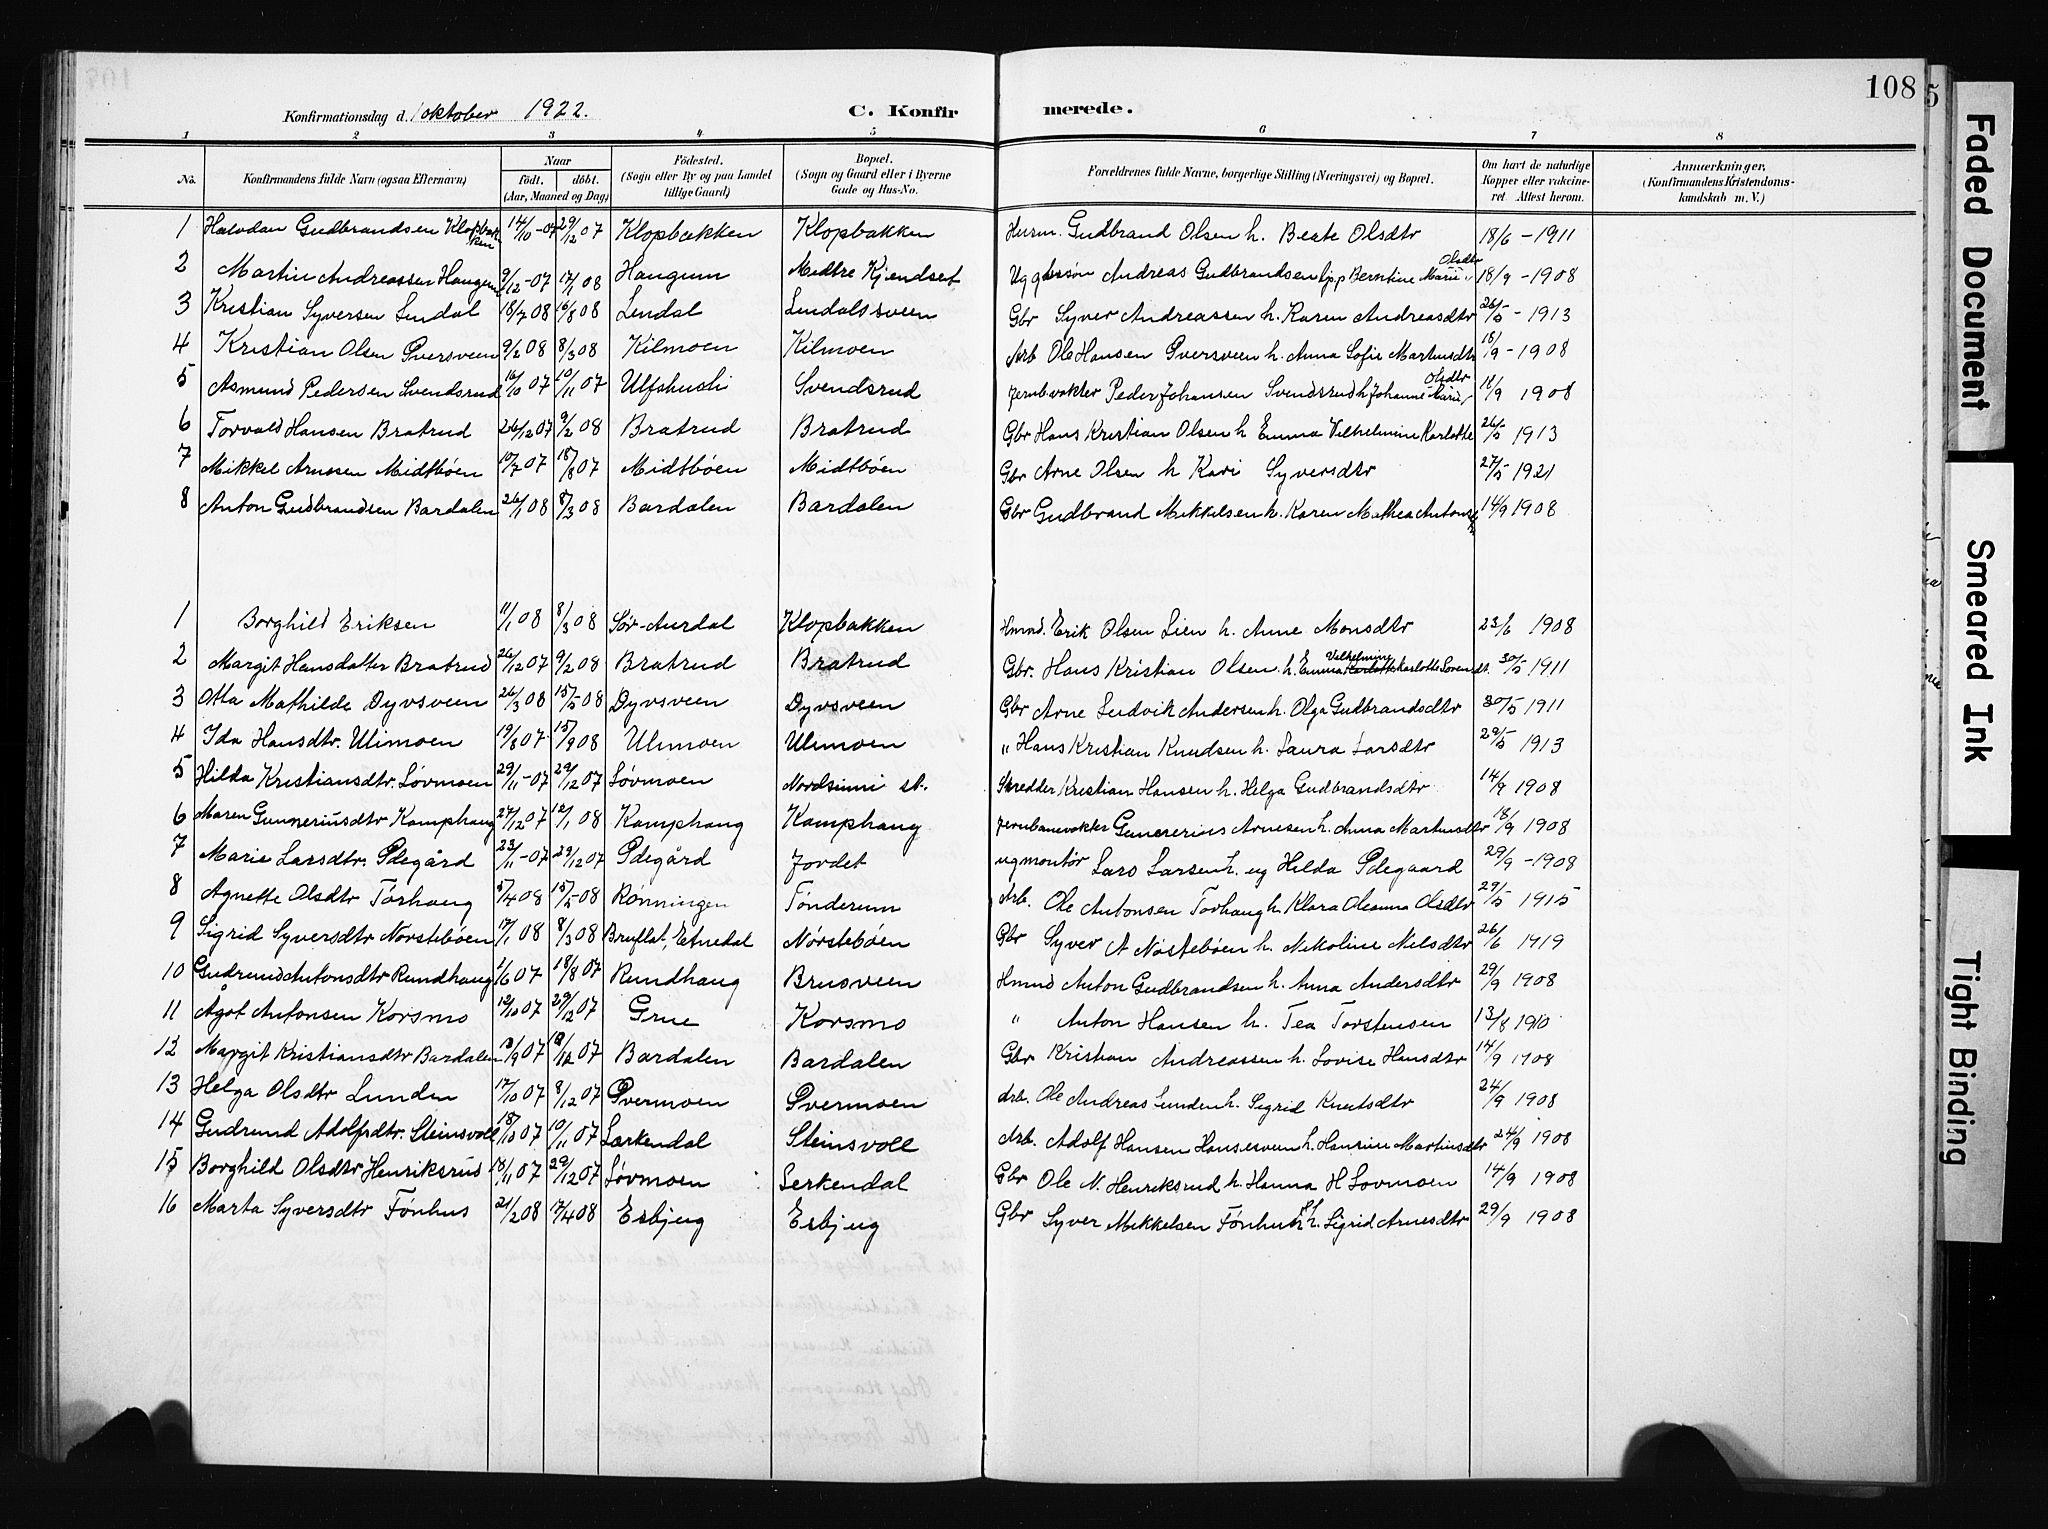 108
Konfirmationsdag d. 1 oktober 1922.
C. Konfirmerede.
1 2 3 4 5 6 7 8
No.
Konfirmandens fulde Navn (ogsaa Efternavn)
Naar
födt. döbt.
(Aar, Maaned og Dag)
Födested.
(Sogn eller By og paa Landet tillige Gaard)
Bopæl.
(Sogn og Gaard eller i Byerne Gade og Hus-No.
Forældrenes fulde Navne, borgerlige Stilling (Næringsvei) og Bopæl.
Om havt de naturlige Kopper eller vakcineret. Attest herom.
Anmærkninger,
(Konfirmandens Kristendomskundskab m. V.)
1 Halvdan Gudbrandsen Klopbakken 14/10-07 29/12 07 Klopbækken Klopbakken Husm. Gudbrand Olsen h. Beate Olsdtr 18/6 - 1911
2 Martin Andreassen Haugum 9/12-07 17/1 08 Haugum Midtre Kjendset Andreas Gudbrandsen Berntine Marie Olsdtr 18/9 - 1908
3 Kristian Syversen Lendal 18/7 08 16/8 08 Lendal Lendalssveen Gbr Syver Andreassen h. Karen Andreasdtr 26/5 - 1913
4 Kristian Olsen Øversveen 9/2 08 8/3 08 Kilmoen Kilmoen Arb Ole Hansen Øversveen h. Anna Sofie Martinsdtr 18/9 - 1908
5 Asmund Pedersen Svendsrud 16/10 07 10/11 07 Ulfshusli Svendsrud Jernbvokter Peder Johansen Svendsrud h Johanne Marie Olsdtr 18/9 1908
6 Torvald Hansen Bratrud 26/12 07 9/2 08 Bratrud Bratrud Gbr Hans Kristian Olsen h Emma Vilhelmine Karlotte 26/5 1913
7 Mikkel Arnesen Midtböen 10/7 07 18/8 07 Midtböen Midtböen Gbr Arne Olsen h Kari Syversdtr 27/5 1921
8 Anton Gudbrandsen Bardalen 26/1 08 8/3 08 Bardalen Bardalen Gbr Gudbrand Mikkelsen h. Karen Mathea Antonsen 14/9 1908
1 Borghild Eriksen 11/1 08 8/3 08 Sör-Aurdal Klopbakken Hmnd. Erik Olsen Lien h. Anne Monsdtr 23/6 1908
2 Margit Hansdatter Bratrud 26/12 07 9/2 08 Bratrud Bratrud Gbr. Hans Kristian Olsen h. Emma Vilhelmine Karlotte Sorensdt. 30/5 1911
3 Otta Mathilde Dyvsveen 26/3 08 15/5 08 Dyvsveen Dyvsveen Gbr Arne Ludvik Andersen h. Olga Gudbrandsdtr 30/5 1911
4 Ida Hansdtr. Ulimoen 19/8 07 15/9 08 Ulimoen Ulimoen " Hans Kristian Knudsen h. Laura Larsdtr 29/5 1913
5 Hilda Kristiansdtr. Lövmoen 29/11-07 29/12 07 Lövmoen Nordsinni st. Skredder Kristian Hansen h. Helga Gudbrandsdtr 14/9 1908
6 Maren Gunneriusdtr Kamphaug 27/12 07 12/1 08 Kamphaug Kamphaug Jernbanevokter Gunnerius Arnesen h. Anna Martinsdtr 18/9 1908
7 Marie Larsdtr. Ødegård 23/11-07 29/12 07 Ødegård Jordet ugmontör Lars Larsen h. ug Hilda Ødegaard 29/9 - 1908
8 Agnette Olsdtr Torhaug 5/4 08 15/5 08 Rönningen Tönderum Arb. Ole Antonsen Torhaug h. Klara Oleanna Olsdtr 29/5 1915
9 Sigrid Syversdtr Nörstebøen 17/1 08 8/3 08 Bruflat, Etnedal Nörstebøen Gbr Syver A Nöstebøen h. Nikoline Nilsdtr 26/6 1919
10 Gudrund Antonsdtr Rundhaug 1/6 07 18/8 07 Rundhaug Brusveen Hmnd Anton Gudbrandsen h. Anna Andersdtr 29/9 1908
11 Ågot Antonsen Korsmo 12/10 07 29/12 07 Grue Korsmo " Anton Hansen h. Tea Torstensen 13/8 1910
12 Margit Kristiansdtr Bardalen 13/9 07 07 Bardalen Bardalen Gbr Kristian Andreassen h. Lovise Hansdtr 14/9 1908
13 Helga Olsdtr Lunden 17/10 07 8/12 07 Øvermoen Øvermoen Arb. Ole Andreas Lunden h. Sigrid Knutsdtr 24/9 1908
14 Gudrund Adolfsdtr. Steinsvoll 18/10 07 10/11 07 Lærkendal Steinsvoll Arb. Adolf Hansen Hansesveen h. Hansine Martinsdtr 24/9 1908
15 Borghild Olsdtr Henriksrud 18/11 07 29/12 07 Lövmoen Lerkendal Gbr Ole N. Henriksrud h. Hanna H Lovmoen 14/9 1908
16 Marta Syversdtr Fönhus 21/2 08 17/4 08 Esbjug Esbjug Gbr Syver Mikkelsen Fönhus h. Sigrid Arnesdtr 29/9 1908
5
Faded Document
Smeared Ink
Tight Binding